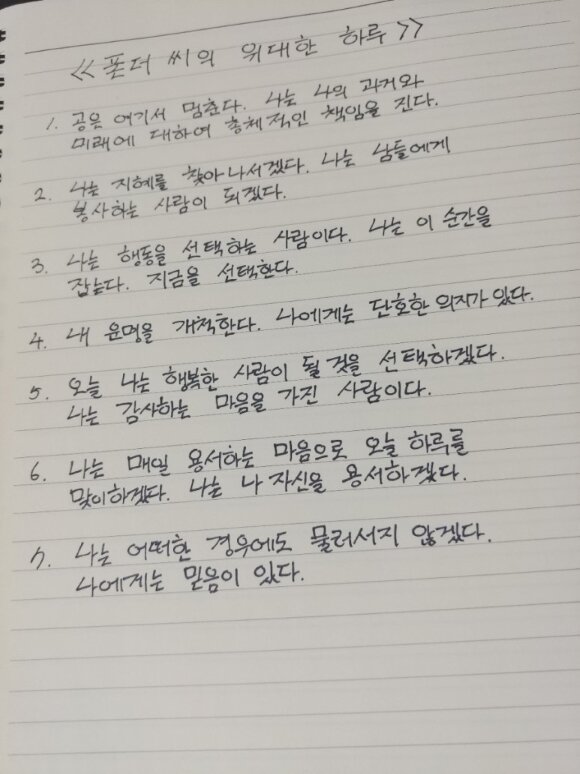 <<폰더 씨의 위대한 하루>>
1. 공은 여기서 멈춘다. 나는 나의 과거와
미래에 대하여 총체적인 책임을 진다.
2. 나는 지혜를 찾아 나서겠다. 나는 남들에게
봉사하는 사람이 되겠다.
3. 나는 행동을 선택하는 사람이다. 나는 이 순간을
잡는다. 지금을 선택한다.
4. 내 운명을 개척한다. 나에게는 단호한 의지가 있다.
5. 오늘 나는 행복한 사람이 될 것을 선택하겠다.
나는 감사하는 마음을 가진 사람이다.
6. 나는 매일 용서하는 마음으로 오늘 하루를
맞이하겠다. 나는 나 자신을 용서하겠다.
7. 나는 어떠한 경우에도 물러서지 않겠다.
나에게는 믿음이 있다.